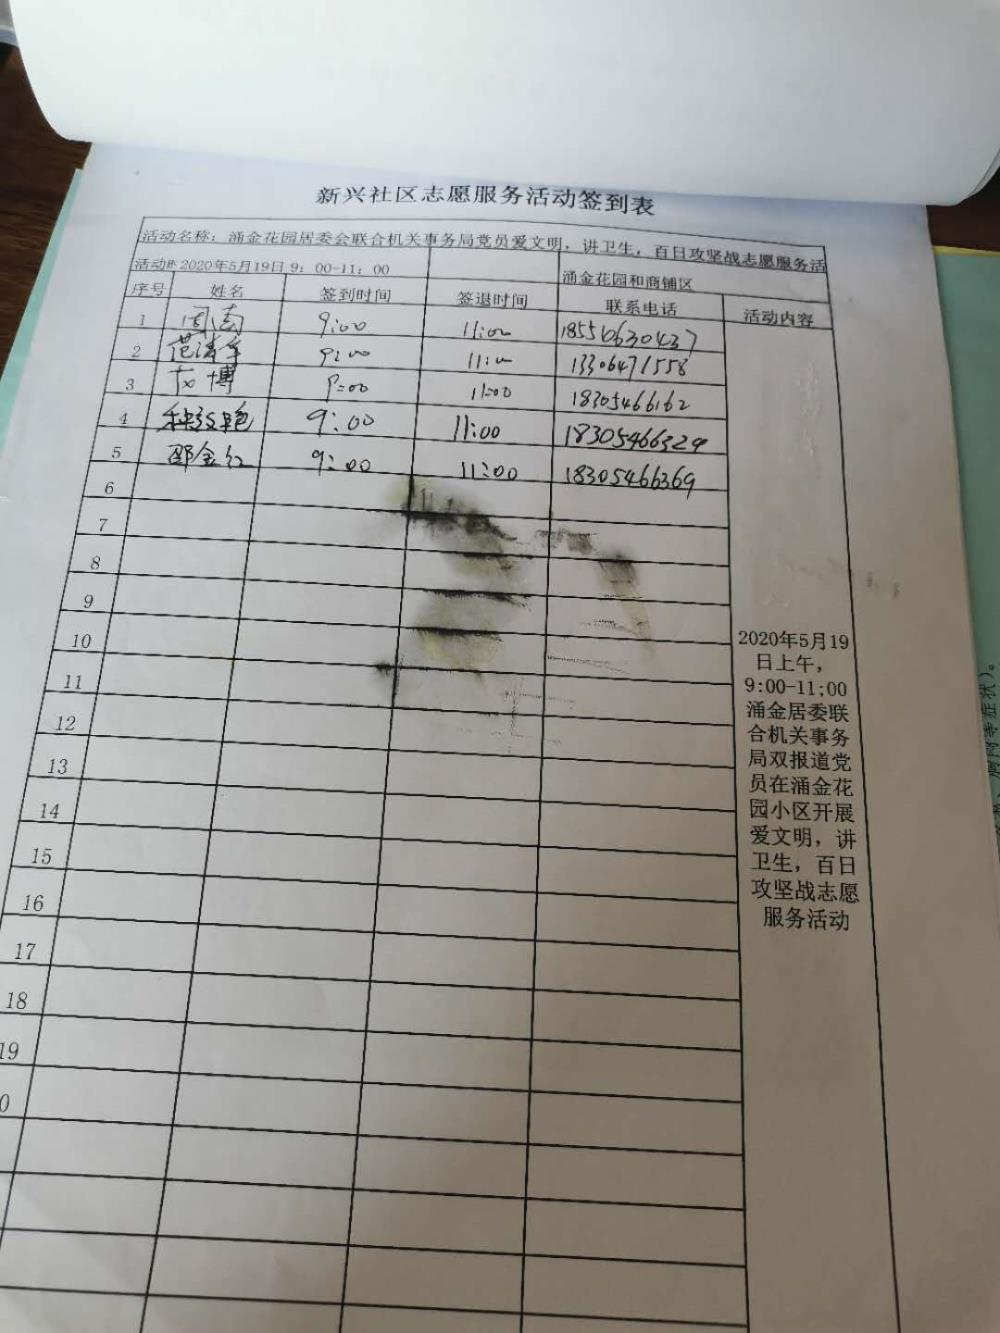 新兴社区志愿服务活动签到表
活动名称：涌金花园居委会联合机关事务局党员爱文明，讲卫生，百日攻坚战志愿服务活
活动时 2020年5月19日 9：00-11：00 涌金花园和商铺区
序号 姓名 签到时间 签退时间 联系电话 活动内容
1 周南 9:00 11:00 18550630437
2 范清华 9:00 11:00 13306471558
3 博 9:00 11:00 18305466162
4 9:00 11:00 18305466329
5 邵金红 9:00 11:00 18305466369
6
7
8
9
10
11
12
13
14
15
16
17
18
19
0
2020年5月19
日上午，
9:00-11;00
涌金居委联
合机关事务
局双报道党
员在涌金花
园小区开展
爱文明，讲
卫生，百日
攻坚战志愿
服务活动